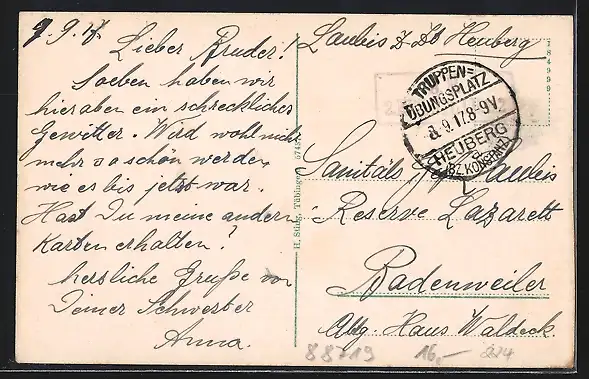 7.9.17
Lieber Bruder!
Soeben haben wir
hier oben ein schreckliches
Gewitter. Wird wohl nicht
mehr so schön werden
wie es bis jetzt war.
Hast Du meine andern
Karten erhalten?
herzliche Grüße von
Deiner Schwester
Anna.
H. Sting, Tübingen
784999
Heuberg
TRUPPEN=
ÜBUNGSPLATZ
8.9.17.8-9V.
HEUBERG
a
(BZ. KONSTANZ)
Sanitäts
Reserve Lazarett
Badenweiler
Abtg. Haus Waldeck.
88719 16,- 224